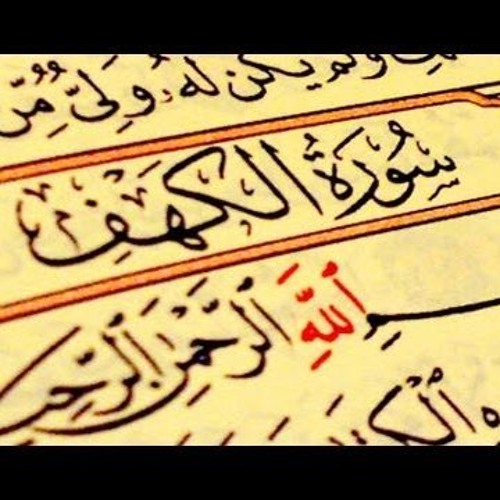 وَلَمْ يَكُن لَّهُۥ وَلِىٌّ مِّنَ
سُورَةُ الْكَهْفِ
بِسْمِ ٱللَّهِ ٱلرَّحْمَٰنِ ٱلرَّحِيمِ
ٱلْكِتَٰ